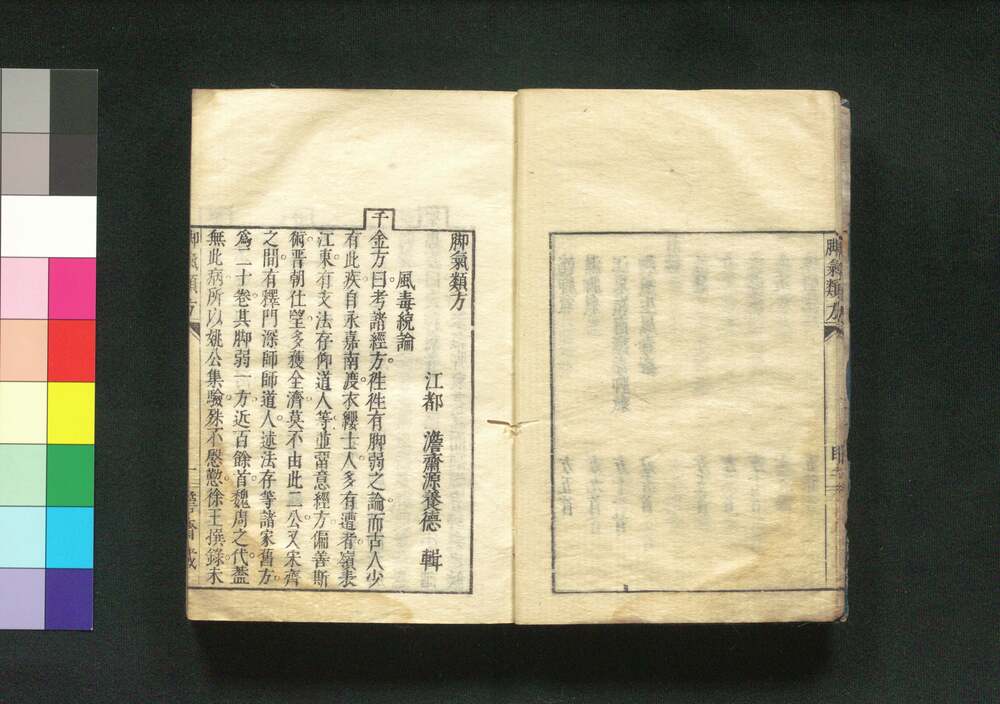 脚氣類方
目
脚氣類方
江都 澹齋源養德 輯
風毒統論
千金方曰考諸經方徃徃有脚弱之論而古人少
有此疾自永嘉南渡衣纓士人多有遭者嶺表
江東有支法存仰道人等並留意經方偏善斯
術晋朝仕望多獲全濟莫不由此二公又宋齊
之間有釋門深師師道人述法存等諸家舊方
爲三十卷其脚弱一方近百餘首魏周之代蓋
無此病所以姚公集驗殊不慇懃徐王撰錄未
脚氣類方